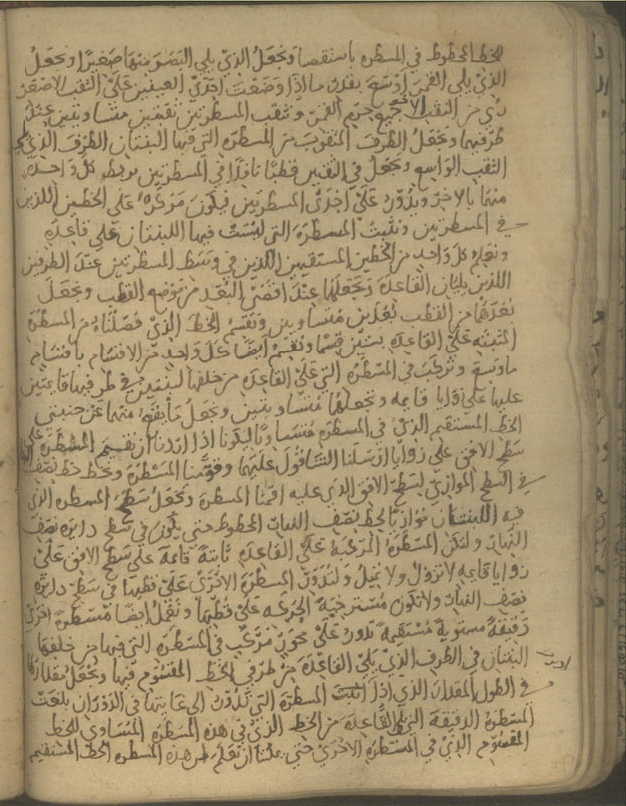 للخط المخطوط في المسطره باستقصا ونجعل الذي يلي البصر منهما صغيرا ونجعل
الذي يلي القمر اوسع بقدر ما اذا وضعت احدى العينين على الثقب الاصغر
رُي من الثقب الاخر جميع جرم القمر ونثقب المسطرتين ثقبين متساويين عند
طرفيهما ونجعل الطرف المثقوب من المسطره التي فيها اللبنتان الطرف الذي
الثقب الواسع ونجعل في الثقبين قطبا نافذا في المسطرتين يربط كل واحده
منهما بالاخرى ويدور على احدى المسطرتين فيكون مركزه على الخطين اللذين
في المسطرتين ونثبت المسطره التي ليست فيها اللبنتان على قاعده
ونعلم كل واحد من الخطين المستقيمين اللذين في وسط المسطرتين عند الطرفين
اللذين يليان القاعده ونجعلها عند اقصى البعد من موضع القطب ونجعل
بعدهما من القطب بعدين متساويين ونقسم الخط الذي فصلناه من المسطره
المثبته على القاعده بستين قسما ونقسم ايضا كل واحد من الاقسام باقسام
متساويه ونركب في المسطره التي على القاعده من خلفها لبنتين في طرفيها قائمتين
عليها على زوايا قايمه ونجعلهما متساويتين ونجعل ما بقي منهما عن جنبتي
الخط المستقيم الذي في المسطره متساويا ليكونا اذا اردنا ان نقيم المسطره على
سطح الافق على زوايا ارسلنا الشاقول عليهما وقومنا المسطره ونخط خط نصف
في السطح الموازي لسطح الافق الذي عليه اقمنا المسطره ونجعل سطح المسطره الذي
فيه اللبنتان موازيا لخط نصف النهار المخطوط حتى يكون في سطح دايره نصف
النهار ولتكن المسطره المركبه على القاعده ثابته قائمه على سطح الافق على
زوايا قايمه لا تزول ولا تميل ولتدور المسطره الاخرى على قطبها في سطح دايره
نصف النهار ولا تكون مسترخيه الحركه على قطبها ونعمل ايضا مسطره اخرى
دقيقه مستويه مستقيمه تدور على محور مركب في المسطره التي فيها من خلفها
اللبنتان في الطرف الذي يلي القاعده من طرفي الخط المقسوم فيها ونجعل مقدارها
في الطول المقدار الذي اذا اديرت المسطره التي تدور الى غايتها في الدوران بلغت
المسطره الدقيقه التي على القاعده من الخط الذي في هذه المسطره المتساوي للخط
المقسوم الذي في المسطره الاخرى حتى يمكننا ان نعلم من هذه المسطره الخط المستقيم